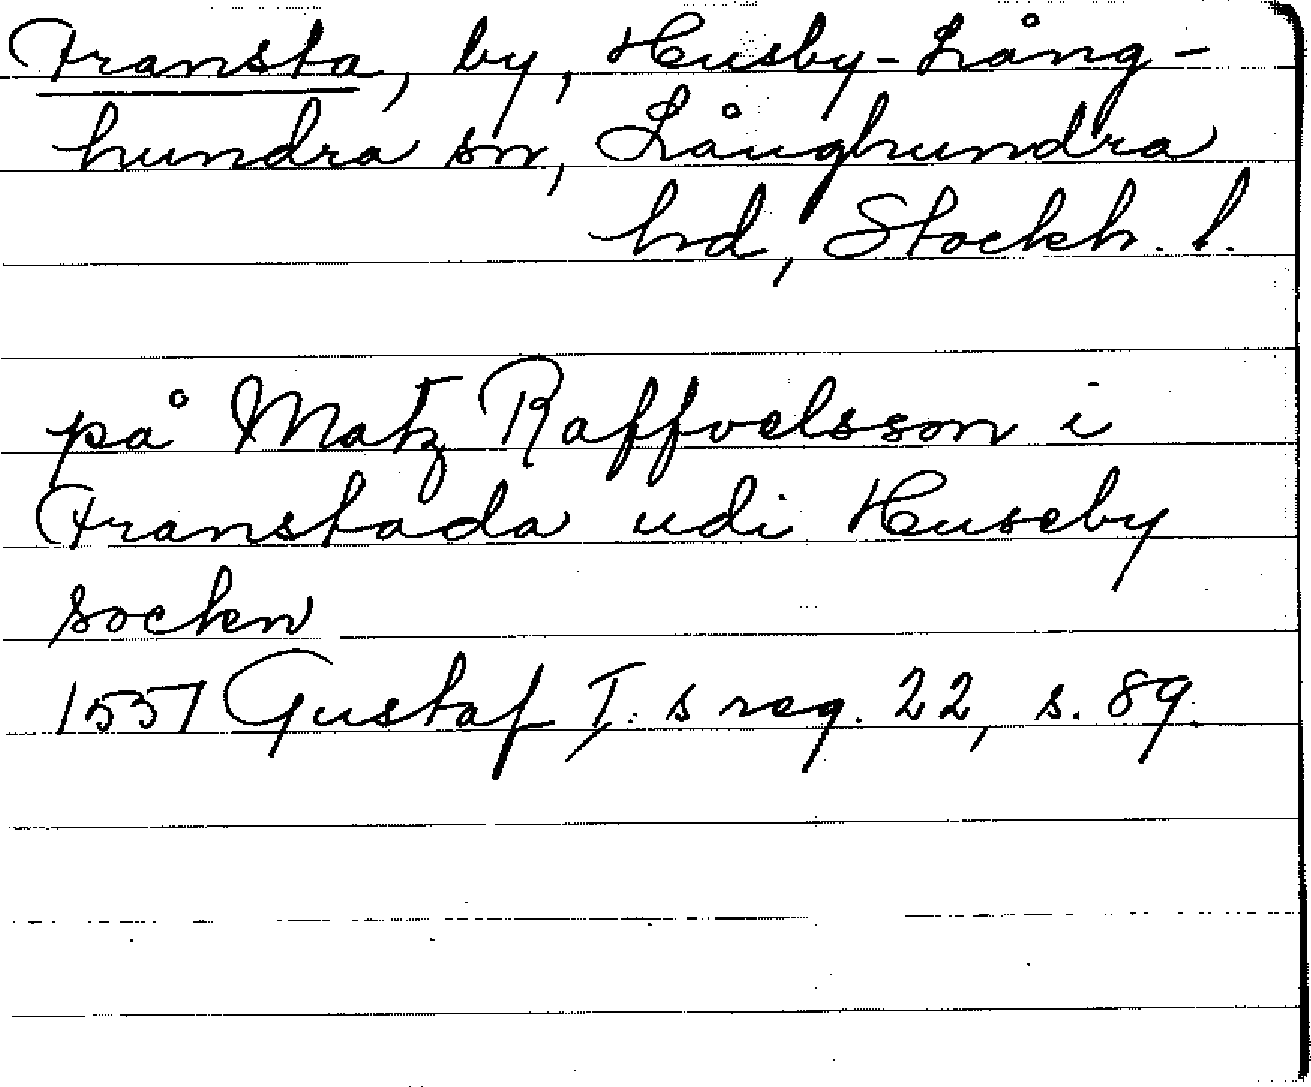 Fransta, by, Husby-Lång-
hundra sn, Långhundra
hd, Stockh. l.
på Matz Raffvelsson i
Franstada udi Huseby
sockn
1557 Gustaf I:s reg. 22, s. 89.